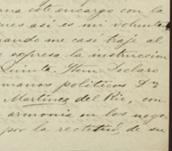 una este encargo con la
pues así es mi volunta
cuando me casé traje al
expresa la instrucción
Quinta. Item Declaro
manos políticos Dn
Martinez del Rio, con
armonia en los nego
por la rectitud, de su